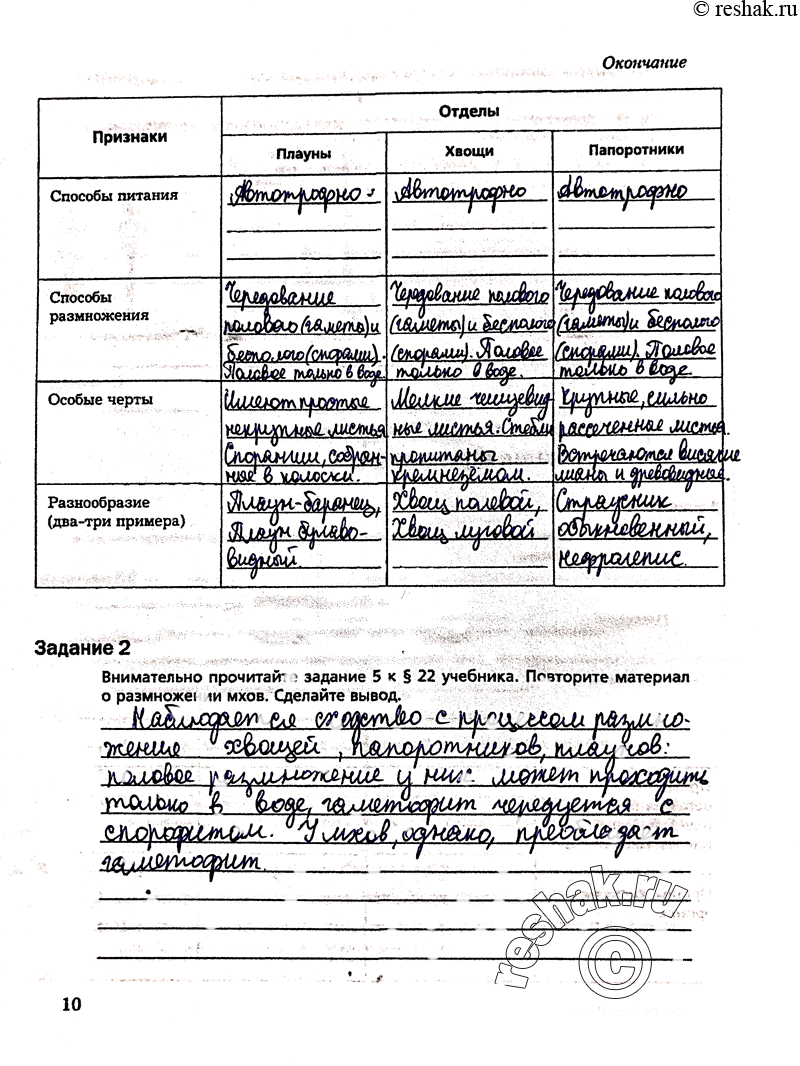 © reshak.ru
Окончание
Признаки
Отделы
Плауны
Хвощи
Папоротники
Способы питания
Автотрофно
Автотрофно
Автотрофно
Способы
размножения
Чередование
полового (гаметы) и
бесполого (спорами).
Половое только в воде.
Чередование полового
(гаметы) и бесполого
(спорами). Половое
только в воде.
Чередование полового
(гаметы) и бесполого
(спорами). Половое
только в воде
Особые черты
Имеют простые
некрупные листья
Спорангии, собран-
ные в колоски.
Мелкие чешуевид-
ные листья. Стебли
пропитаны
кремнезёмом.
Крупные, сильно
рассеченные листья.
Встречаются висячие
лианы и древовидные.
Разнообразие
(два-три примера)
Плаун-баранец,
Плаун булаво-
видный.
Хвощ полевой,
Хвощ луговой
Страусник
обыкновенный,
нефролепис.
Задание 2
Внимательно прочитайте задание 5 к § 22 учебника. Повторите материал
о размножении мхов. Сделайте вывод.
Наблюдается сходство с процессом размно-
жения хвощей, папоротников, плаунов:
половое размножение у них может проходить
только в воде, гаметофит чередуется с
спорофитом. У мхов, однако, преобладает
гаметофит.
reshak.ru
©
10